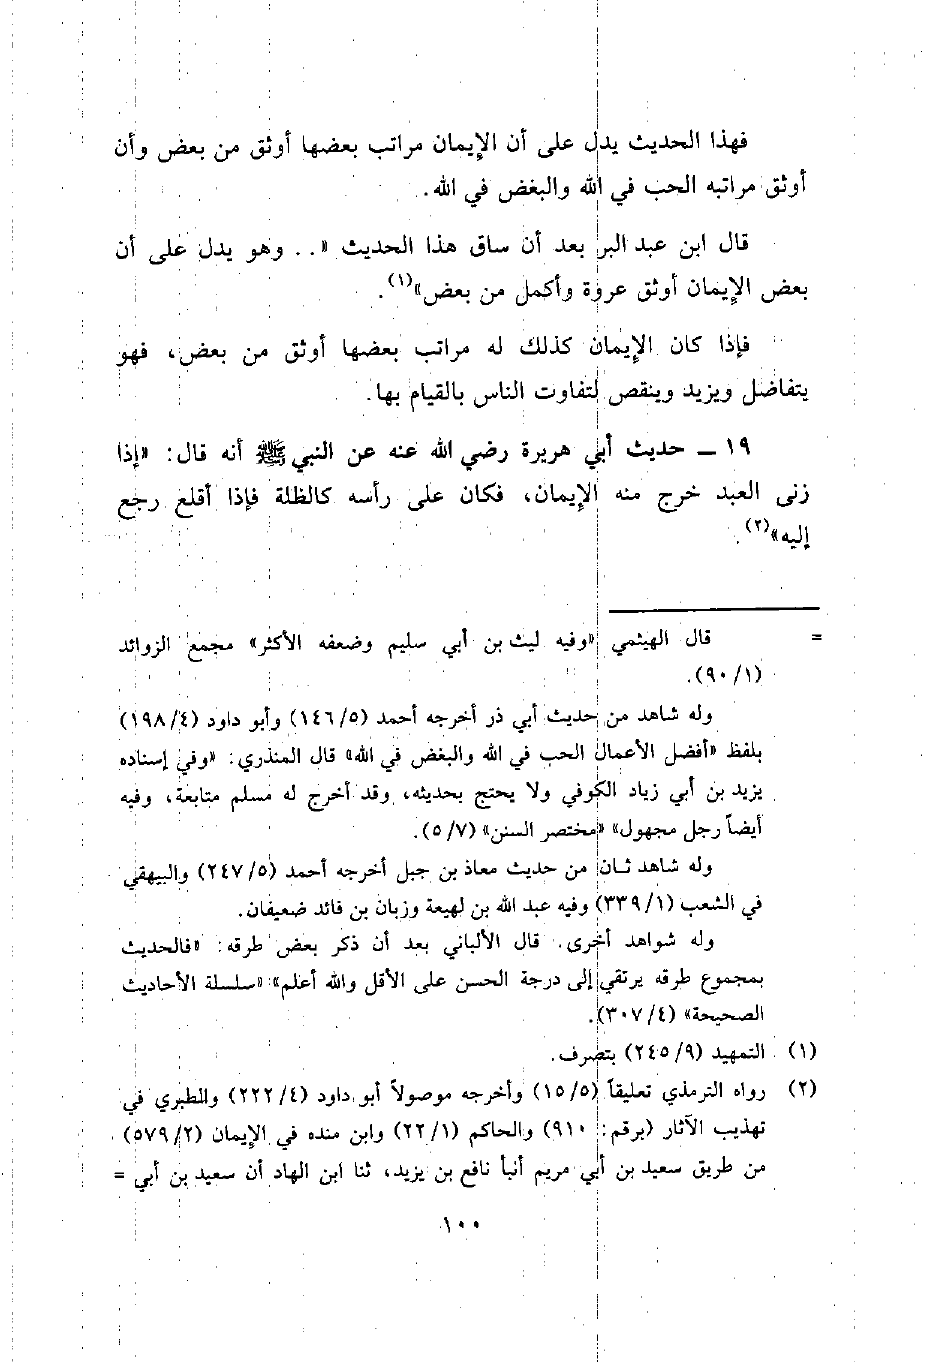 فهذا الحديث يدل على أن الإيمان مراتب بعضها أوثق من بعض وأن
أوثق مراتبه الحب في الله والبغض في الله.
قال ابن عبد البر بعد أن ساق هذا الحديث «.. وهو يدل على أن
بعض الإيمان أوثق عروة وأكمل من بعض»(١).
فإذا كان الإيمان كذلك له مراتب بعضها أوثق من بعض، فهو
يتفاضل ويزيد وينقص لتفاوت الناس بالقيام بها.
١٩ ـ حديث أبي هريرة رضي الله عنه عن النبي ﷺ أنه قال: «إذا
زنى العبد خرج منه الإيمان، فكان على رأسه كالظلة فإذا أقلع رجع
إليه»(٢).
= قال الهيثمي «وفيه ليث بن أبي سليم وضعفه الأكثر» مجمع الزوائد
(٩٠/١).
وله شاهد من حديث أبي ذر أخرجه أحمد (١٤٦/٥) وأبو داود (١٩٨/٤)
بلفظ «أفضل الأعمال الحب في الله والبغض في الله» قال المنذري: «وفي إسناده
يزيد بن أبي زياد الكوفي ولا يحتج بحديثه، وقد أخرج له مسلم متابعة، وفيه
أيضاً رجل مجهول» «مختصر السنن» (٥/٧).
وله شاهد ثان من حديث معاذ بن جبل أخرجه أحمد (٢٤٧/٥) والبيهقي
في الشعب (٣٣٩/١) وفيه عبد الله بن لهيعة وزبان بن فائد ضعيفان.
وله شواهد أخرى. قال الألباني بعد أن ذكر بعض طرقه: «فالحديث
بمجموع طرقه يرتقي إلى درجة الحسن على الأقل والله أعلم» «سلسلة الأحاديث
الصحيحة» (٣٠٧/٤).
(١) التمهيد (٢٤٥/٩) بتصرف.
(٢) رواه الترمذي تعليقاً (١٥/٥) وأخرجه موصولاً أبو داود (٢٢٢/٤) والطبري في
تهذيب الآثار (برقم: ٩١٠) والحاكم (٢٢/١) وابن منده في الإيمان (٥٧٩/٢)
من طريق سعيد بن أبي مريم أنبأ نافع بن يزيد، ثنا ابن الهاد أن سعيد بن أبي =
١٠٠